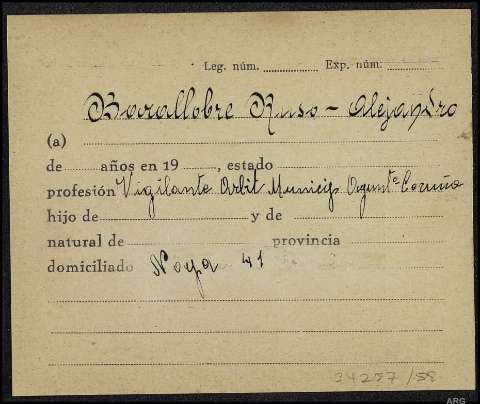 Leg. núm. Exp. núm.
Barallobre Ruso - Alejandro
(a)
de años en 19 , estado
profesión Vigilante Arbit Municip Ayuntº Coruña
hijo de y de
natural de provincia
domiciliado Noya 41
34257/58
ARG